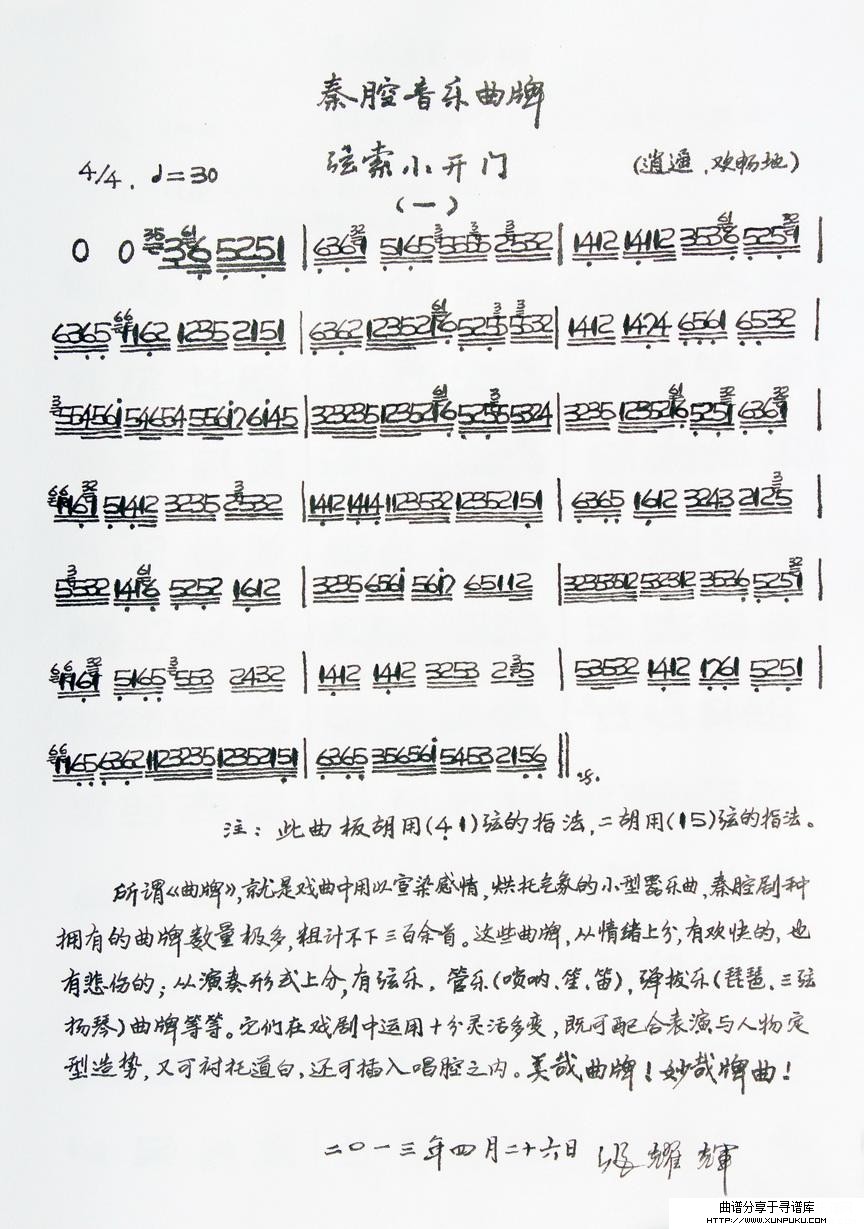 秦腔音乐曲牌
弦索小开门
4/4. ♩=30 (逍遥、欢畅地)
(一)
0 0 35 36 61 5251 | 6367 32 5165 3 5535 3 2532 | 1412 14112 3536 61 5257 32 |
6365 66 7162 1235 2151 | 6362 1235216 61 5255 3 5532 3 | 1412 1474 6561 6532 |
3 554561 54654 55617 6145 | 323235 1235216 61 5255 3 5324 | 3235 1235216 61 5251 32 6367 32 |
66 7167 32 51412 3235 2532 3 | 1412 1414 1123532 12352151 | 6365 1612 3243 2125 3 |
5532 3 1416 61 5252 1612 | 3235 6561 5617 65112 | 32353512 532312 3536 5257 32 |
66 7167 32 5165 3 553 2432 | 1412 1412 3253 235 3 | 53532 1412 1761 5251 |
66 7165 6362 1123235 12352151 | 6365 356561 5453 2156 ‖
注: 此曲板胡用(4 1)弦的指法,二胡用(1 5)弦的指法。
所谓《曲牌》,就是戏曲中用以宣染感情,烘托气象的小型器乐曲,秦腔剧种
拥有的曲牌数量极多,粗计不下三百余首。这些曲牌,从情绪上分,有欢快的,也
有悲伤的;从演奏形式上分,有弦乐.管乐(唢呐、笙、笛),弹拨乐(琵琶、三弦
扬琴)曲牌等等。它们在戏剧中运用十分灵活多变,既可配合表演与人物定
型造势,又可衬托道白,还可插入唱腔之内。美哉曲牌!妙哉牌曲!
二〇一三年四月二十六日 耀輝
曲谱分享于寻谱库
HTTP://WWW.XUNPUKU.COM